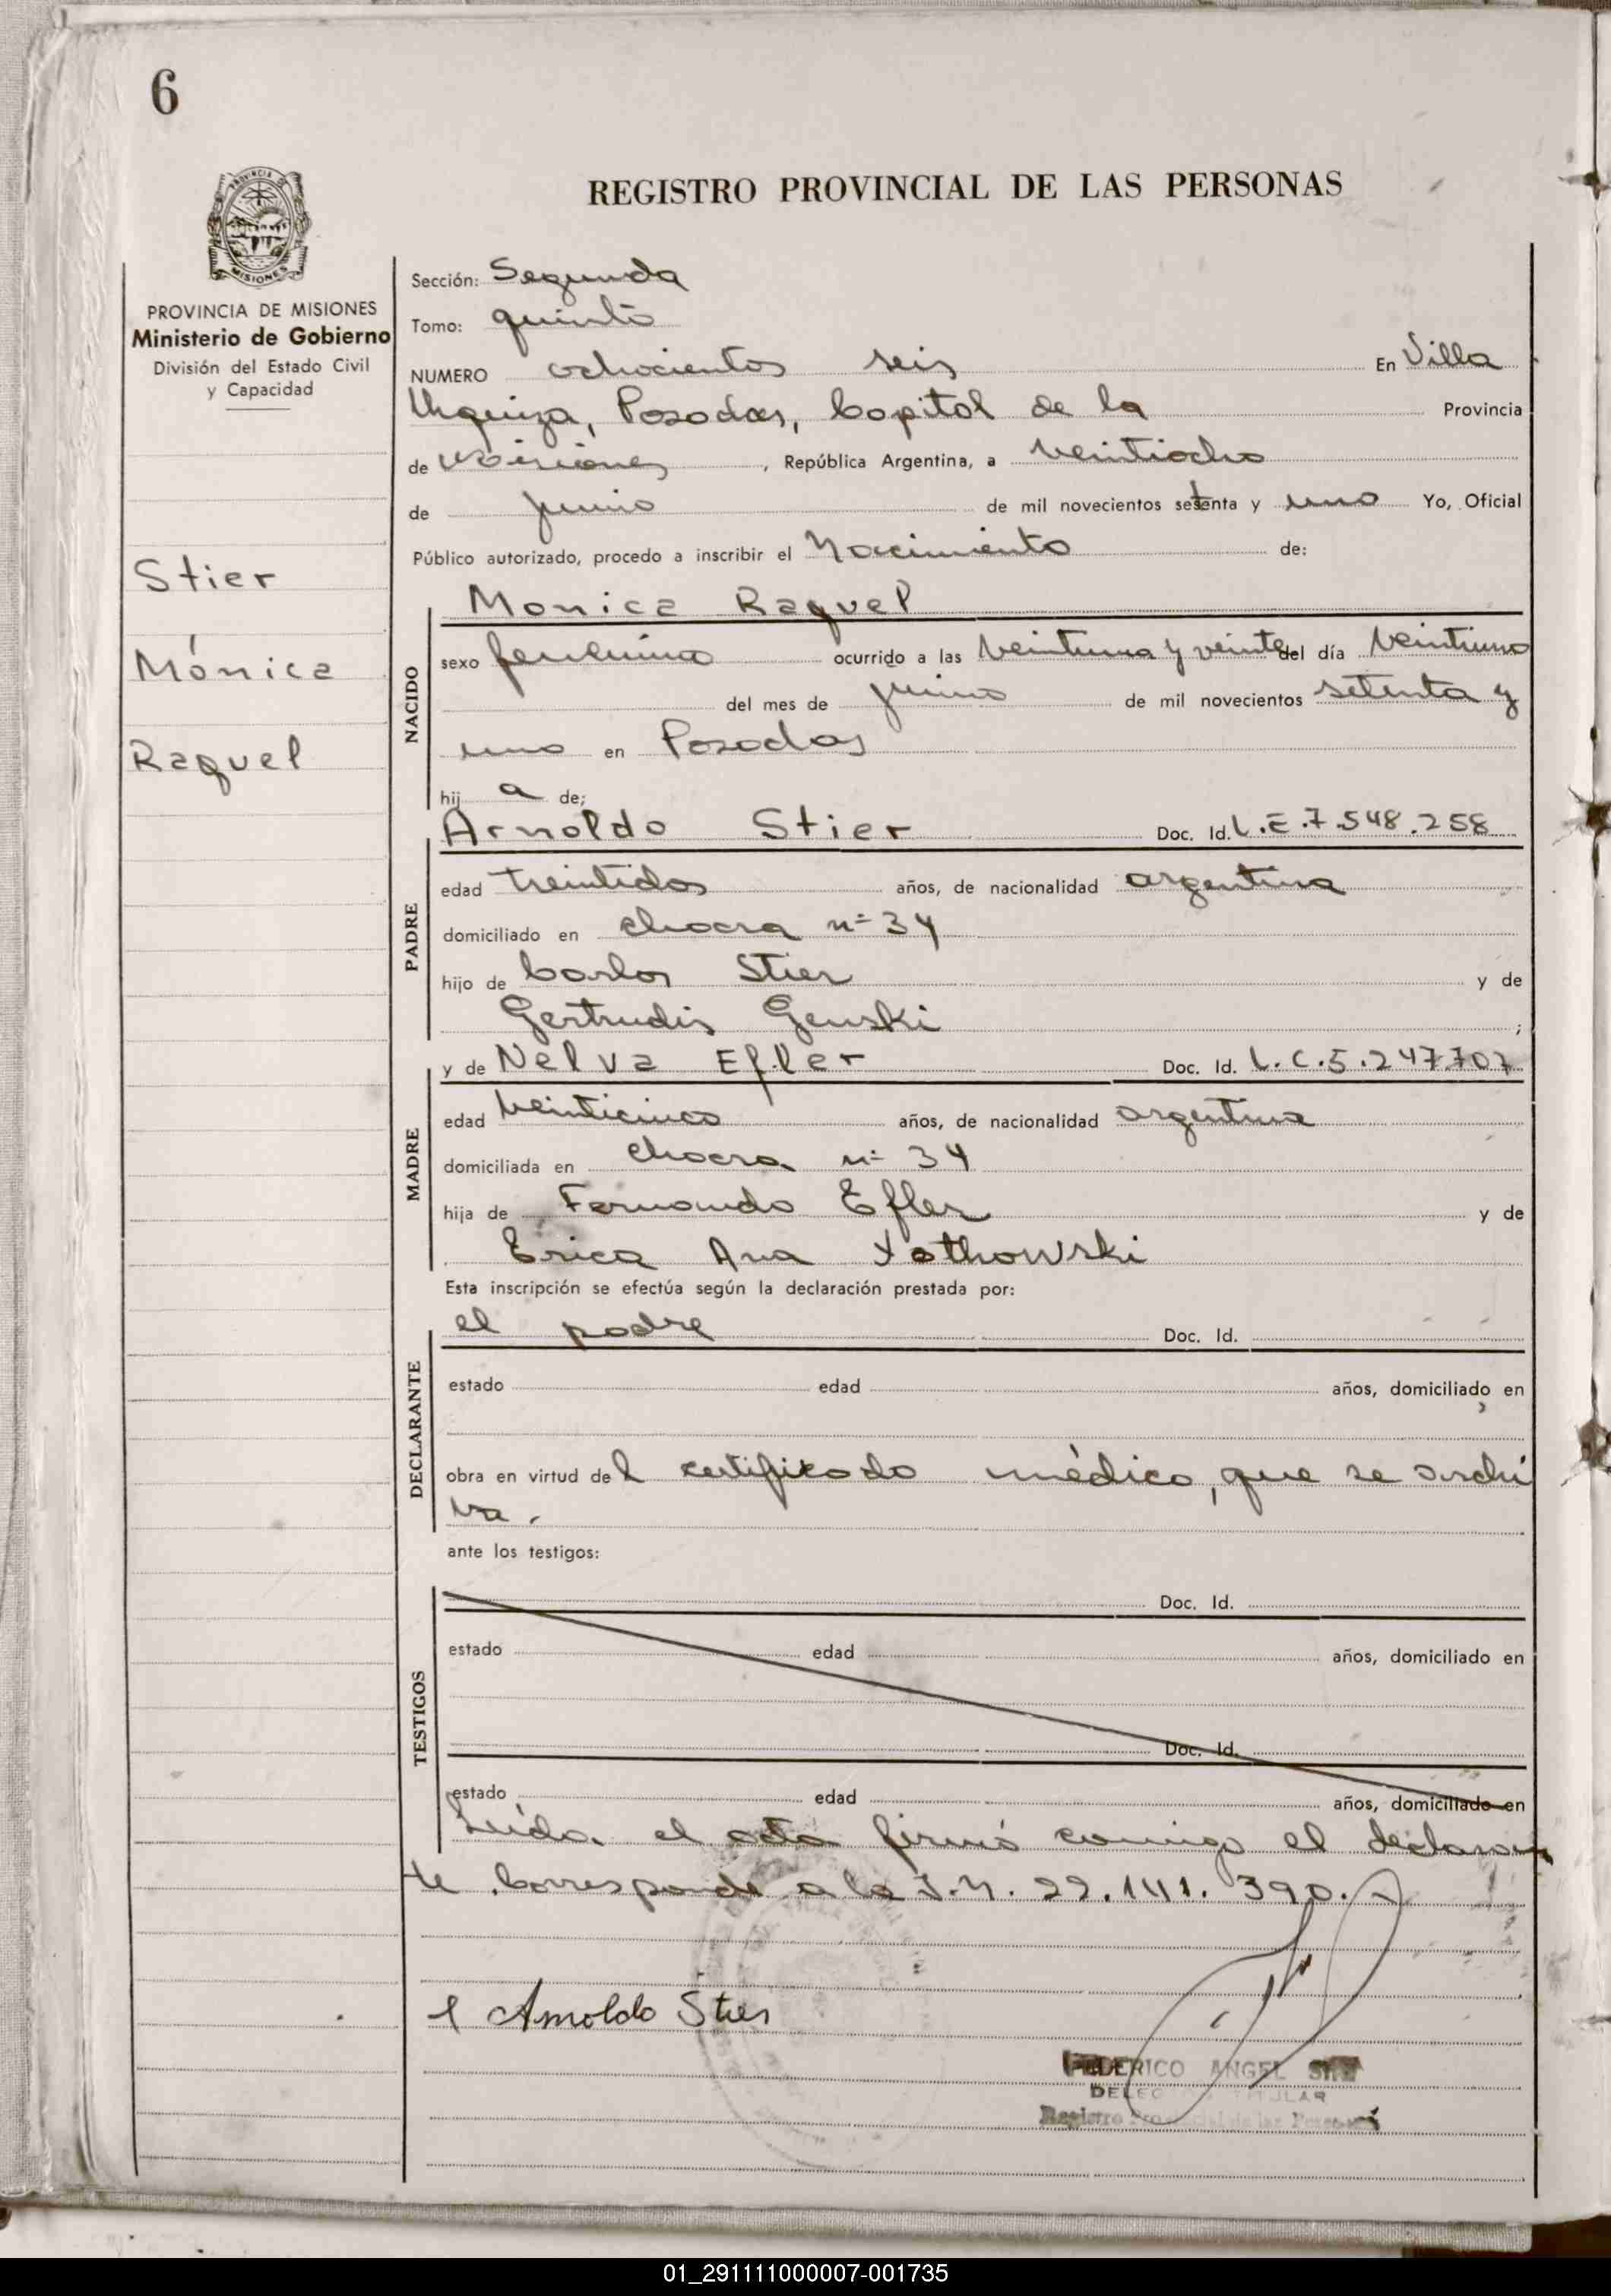 6
PROVINCIA DE
MISIONES
REGISTRO PROVINCIAL DE LAS PERSONAS
PROVINCIA DE MISIONES
Ministerio de Gobierno
División del Estado Civil
y Capacidad
Stier
Mónica
Raquel
Sección: Segunda
Tomo: quinto
NUMERO ochocientos seis En Villa
Urquiza, Posadas, Capital de la Provincia
de Misiones, República Argentina, a veintiocho
de junio de mil novecientos setenta y uno Yo, Oficial
Público autorizado, procedo a inscribir el Nacimiento de:
Monica Raquel
NACIDO
sexo femenino ocurrido a las veintiuna y veinte del día veintiuno
del mes de junio de mil novecientos setenta y
uno en Posadas
hij a de;
Arnoldo Stier Doc. Id. L.E.7.548.258
PADRE
edad treintidos años, de nacionalidad argentina
domiciliado en chacra nº 34
hijo de Carlos Stier y de
Gertrudis Genski ;
y de Nelva Efler Doc. Id. L.C.5.247.707
MADRE
edad veinticinco años, de nacionalidad argentina
domiciliada en chacra nº 34
hija de Fernando Efler y de
Erica Ana
Esta inscripción se efectúa según la declaración prestada por:
el padre Doc. Id.
DECLARANTE
estado edad años, domiciliado en
obra en virtud del certificado médico, que se archi
va.
ante los testigos:
Doc. Id.
TESTIGOS
estado edad años, domiciliado en
Doc. Id.
estado edad años, domiciliado en
Leída el acta firmó conmigo el declaran
te. Corresponde a la I.M. 22.141.390.
Arnoldo Stier
FEDERICO ANGEL
Registro Provincial de las Personas
01_291111000007-001735